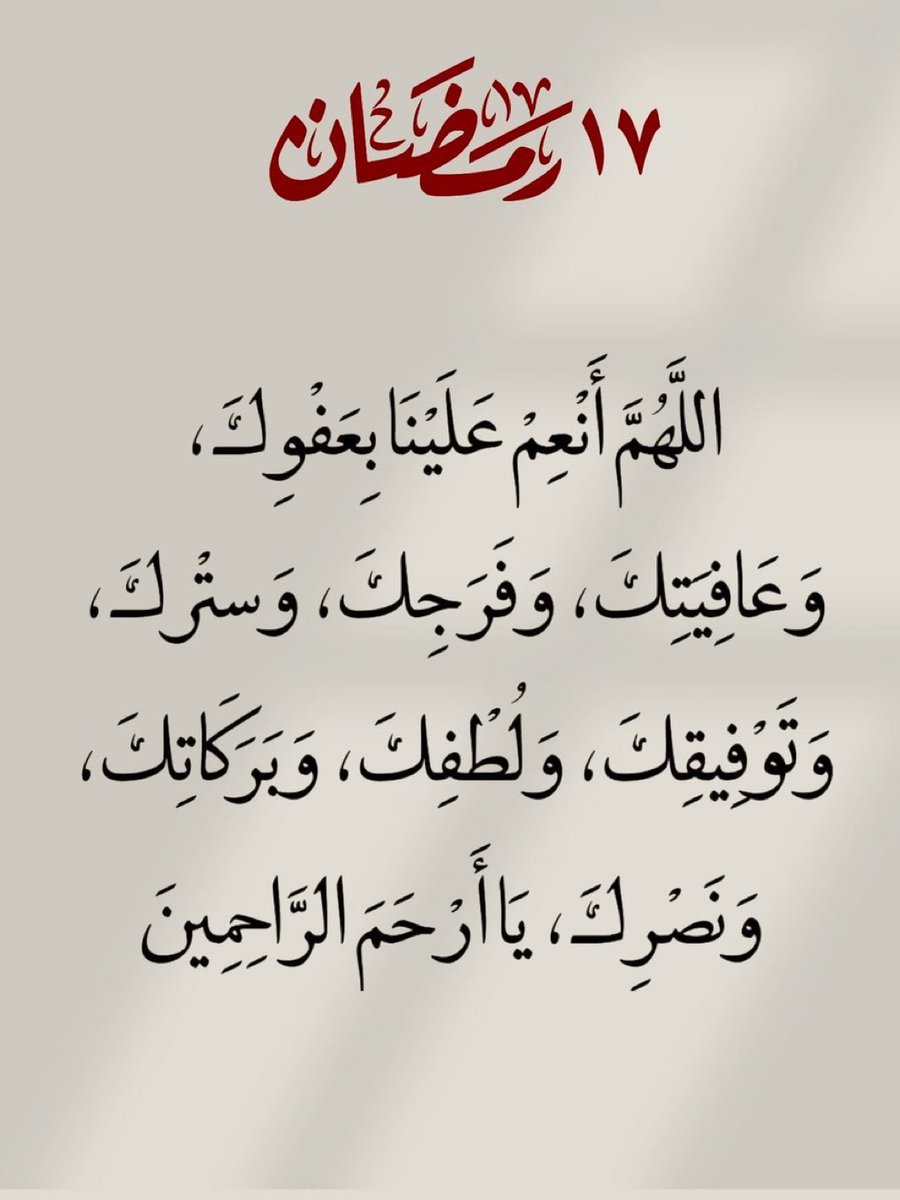 ١٧ رمضان
اللَّهُمَّ أَنْعِمْ عَلَيْنَا بِعَفْوِكَ،
وَعَافِيَتِكَ، وَفَرَجِكَ، وَستْرِكَ،
وَتَوْفِيقِكَ، وَلُطْفِكَ، وَبَرَكَاتِكَ،
وَنَصْرِكَ، يَا أَرْحَمَ الرَّاحِمِينَ